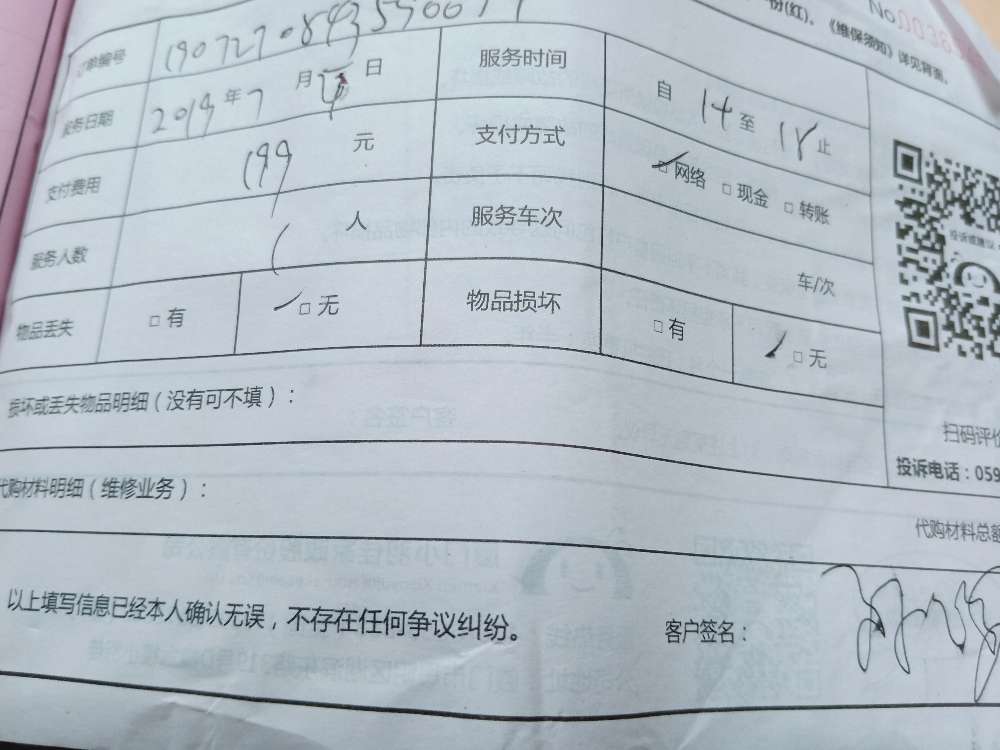 份(红)。《维保须知》详见背面。
No.
订单编号
服务日期 2019年7月 日 服务时间 自14至18止
支付费用 199元 支付方式 网络 □现金 □转账
服务人数 1人 服务车次 车/次
物品丢失 □有 □无 物品损坏 □有 □无
投诉或建议
损坏或丢失物品明细(没有可不填):
扫码评价
投诉电话:059
代购材料明细(维修业务):
代购材料总额
以上填写信息已经本人确认无误,不存在任何争议纠纷。
客户签名: